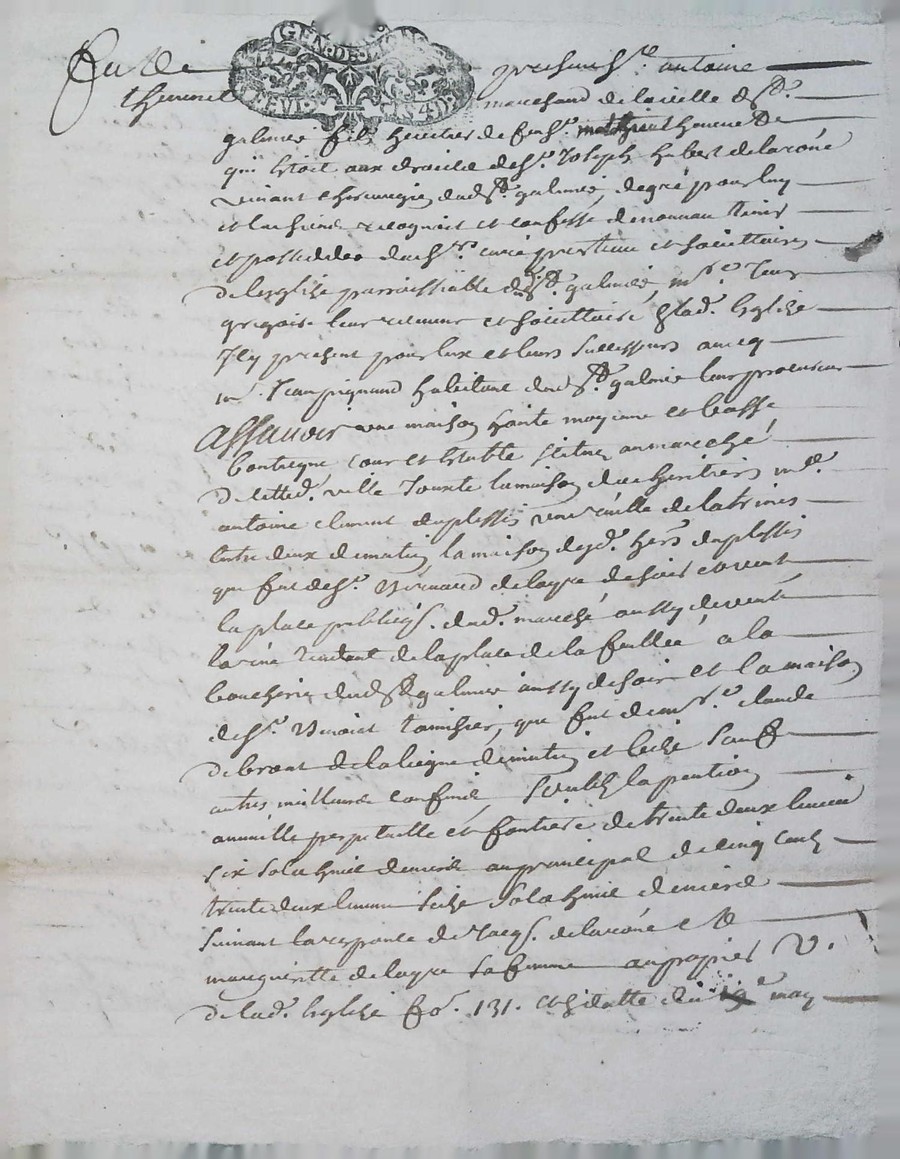 GEN·DE·LION
present Sr. antoine
thevenet marchand de la ville de St.
galmier fils heritier de feu Sr. thevenet
qui étoit aux droits de Sr. Joseph hubert de la roüe
vivant chirurgien dud. St. galmier, de gré pour luy
et les siens recognoit et confesse de nouveau tenir
et posseder des Srs. curé prestres et societtaires
de l'eglise parroissialle dud. St. galmier, mre. Jean
gregoire leur et societtaire de lad. Eglise
Icy present pour eux et leurs successeurs avecq
me. Jean pignard habitant dud. St. galmier leur procureur
Assavoir une maison haute moyenne et basse
Contigue cour et estable scituez au marché
de lad. ville Jouxte la maison des heritiers me.
antoine clement duplessis une ruelle de latrines
entre deux de matin, la maison desd. hers. duplessis
que fut de Sr. de layre de soir et vent
la place publicq. dud. marché aussy de vent
la rüe tendant de la place de la feullée a la
boucherie dud. St. galmier aussy de soir et la maison
de Sr. Benoist tamisier, que fut de mre. claude
de brout de la liegue de matin et bize sauf
autres meilleurs confins, soubz la pention
annuelle perpetuelle et fontiere de trente deux livres
six sols huit deniers au principal de cinq cents
trente deux livres seize sols huit deniers
suivant la responce de Jacq. de la roüe et de
margueritte de layre sa femme au papier V.
de lad. Eglise fo. 131. et de datte du 19e may